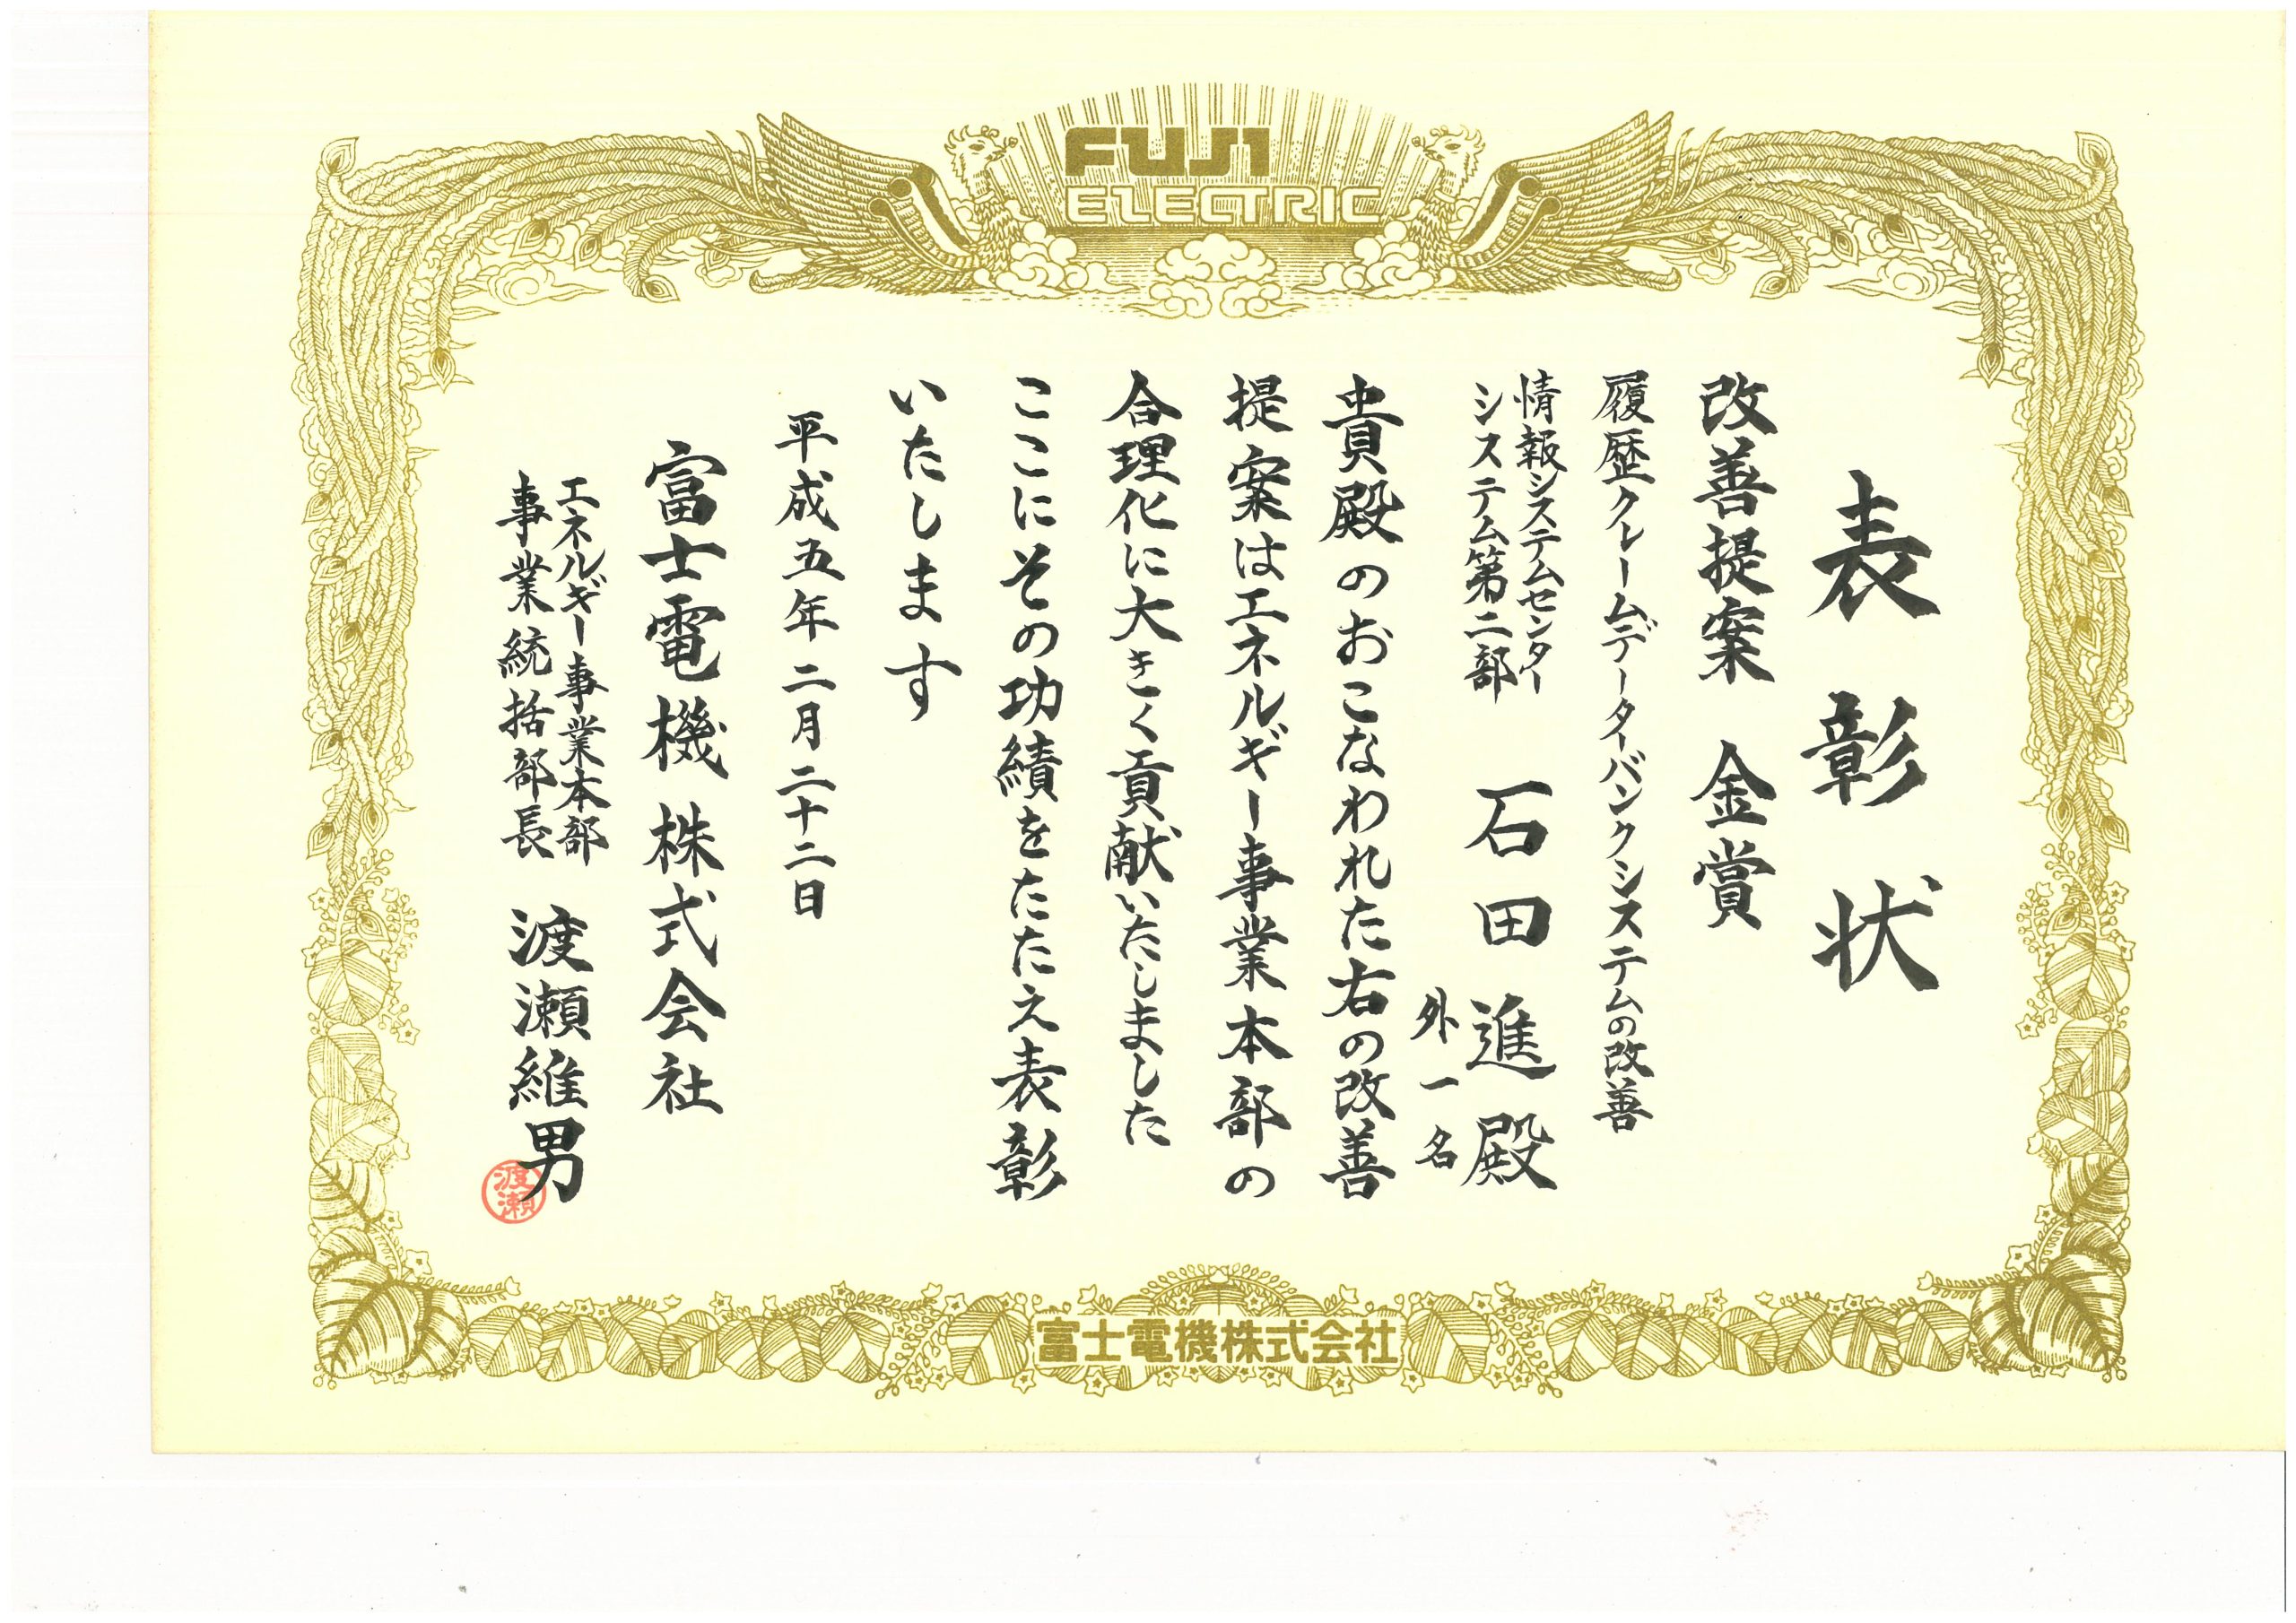 FUJI
ELECTRIC
表彰状
改善提案 金賞
履歴クレームデーターバンクシステムの改善
情報システムセンター
システム第二部
石田進殿
外一名
貴殿のおこなわれた右の改善
提案はエネルギー事業本部の
合理化に大きく貢献いたしました
ここにその功績をたたえ表彰
いたします
平成五年二月二十二日
富士電機株式会社
エネルギー事業本部
事業統括部長
渡瀬維男
渡瀬
富士電機株式会社